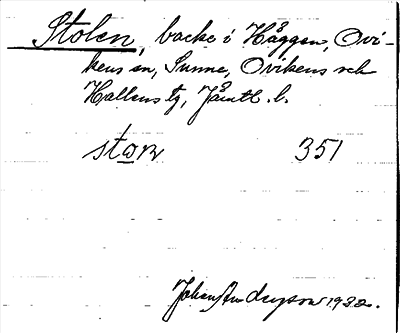 Stolen, backe i Håggen, Ovi-
kens sn, Sunne, Ovikens och
Hallens tg, Jämtl. l.
351
Johan Anderson 1932.